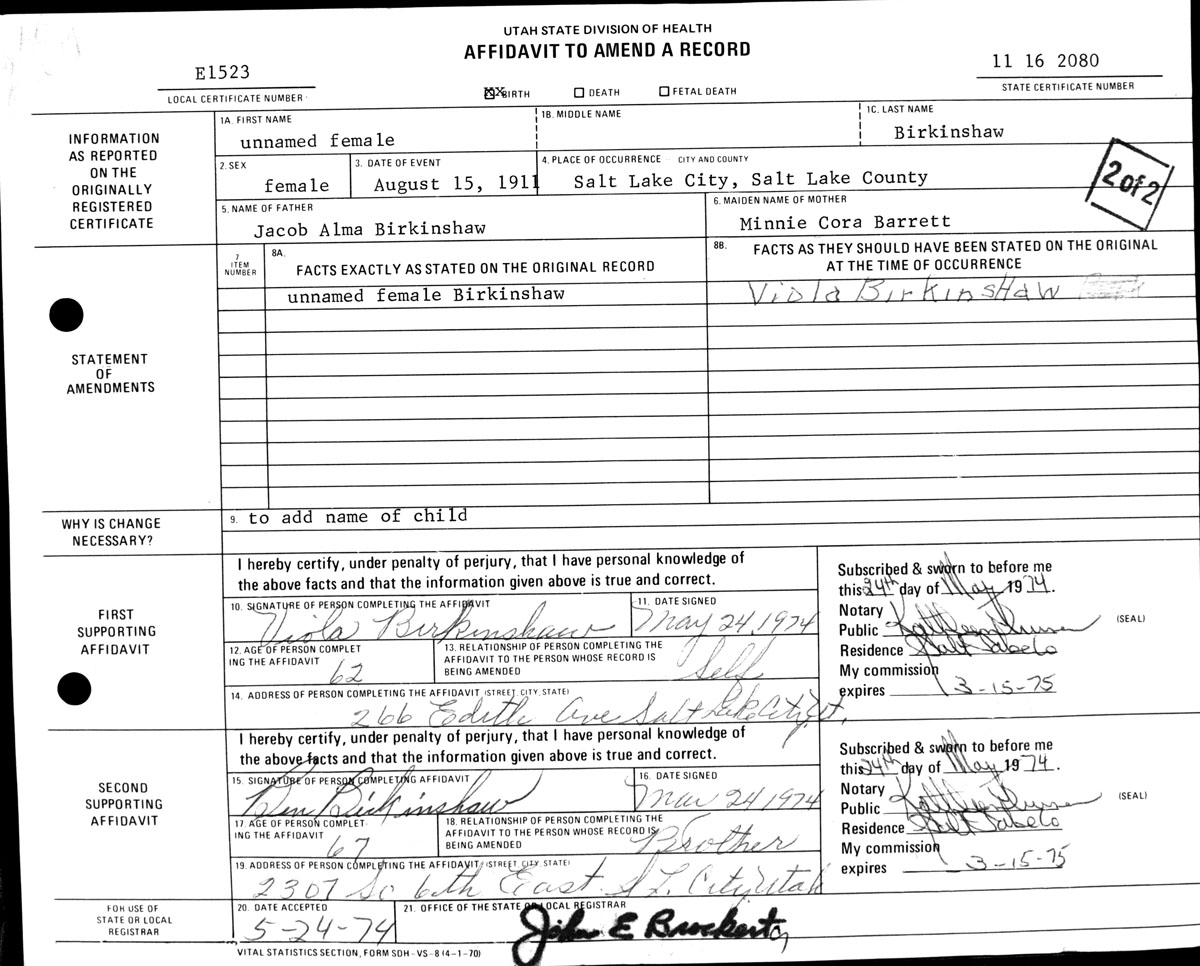 UTAH STATE DIVISION OF HEALTH
AFFIDAVIT TO AMEND A RECORD
E1523
LOCAL CERTIFICATE NUMBER
XX BIRTH
DEATH
FETAL DEATH
11 16 2080
STATE CERTIFICATE NUMBER
INFORMATION
AS REPORTED
ON THE
ORIGINALLY
REGISTERED
CERTIFICATE
1A. FIRST NAME
unnamed female
1B. MIDDLE NAME
1C. LAST NAME
Birkinshaw
2. SEX
female
3. DATE OF EVENT
August 15, 1911
4. PLACE OF OCCURRENCE – CITY AND COUNTY
Salt Lake City, Salt Lake County
2 of 2
5. NAME OF FATHER
Jacob Alma Birkinshaw
6. MAIDEN NAME OF MOTHER
Minnie Cora Barrett
STATEMENT
OF
AMENDMENTS
7
ITEM
NUMBER
8A.
FACTS EXACTLY AS STATED ON THE ORIGINAL RECORD
8B.
FACTS AS THEY SHOULD HAVE BEEN STATED ON THE ORIGINAL
AT THE TIME OF OCCURRENCE
unnamed female Birkinshaw
Viola Birkinshaw
WHY IS CHANGE
NECESSARY?
9. to add name of child
FIRST
SUPPORTING
AFFIDAVIT
I hereby certify, under penalty of perjury, that I have personal knowledge of
the above facts and that the information given above is true and correct.
10. SIGNATURE OF PERSON COMPLETING THE AFFIDAVIT
Viola Birkinshaw
11. DATE SIGNED
May 24, 1974
12. AGE OF PERSON COMPLET
ING THE AFFIDAVIT
62
13. RELATIONSHIP OF PERSON COMPLETING THE
AFFIDAVIT TO THE PERSON WHOSE RECORD IS
BEING AMENDED
Self
14. ADDRESS OF PERSON COMPLETING THE AFFIDAVIT (STREET, CITY, STATE)
266 Edith Ave Salt Lake City, Ut.
Subscribed & sworn to before me
this 24th day of May 1974.
Notary
Public Kathleen
(SEAL)
Residence Salt
My commission
expires 3-15-75
SECOND
SUPPORTING
AFFIDAVIT
I hereby certify, under penalty of perjury, that I have personal knowledge of
the above facts and that the information given above is true and correct.
15. SIGNATURE OF PERSON COMPLETING AFFIDAVIT
Ben Birkinshaw
16. DATE SIGNED
May 24, 1974
17. AGE OF PERSON COMPLET
ING THE AFFIDAVIT
67
18. RELATIONSHIP OF PERSON COMPLETING THE
AFFIDAVIT TO THE PERSON WHOSE RECORD IS
BEING AMENDED
Brother
19. ADDRESS OF PERSON COMPLETING THE AFFIDAVIT (STREET, CITY, STATE)
2307 So 6th East S L. City Utah
Subscribed & sworn to before me
this 24th day of May 1974.
Notary
Public Kathleen
(SEAL)
Residence Salt
My commission
expires 3-15-75
FOR USE OF
STATE OR LOCAL
REGISTRAR
20. DATE ACCEPTED
5-24-74
21. OFFICE OF THE STATE OR LOCAL REGISTRAR
John E Brockert
VITAL STATISTICS SECTION, FORM SDH-VS-8 (4-1-70)